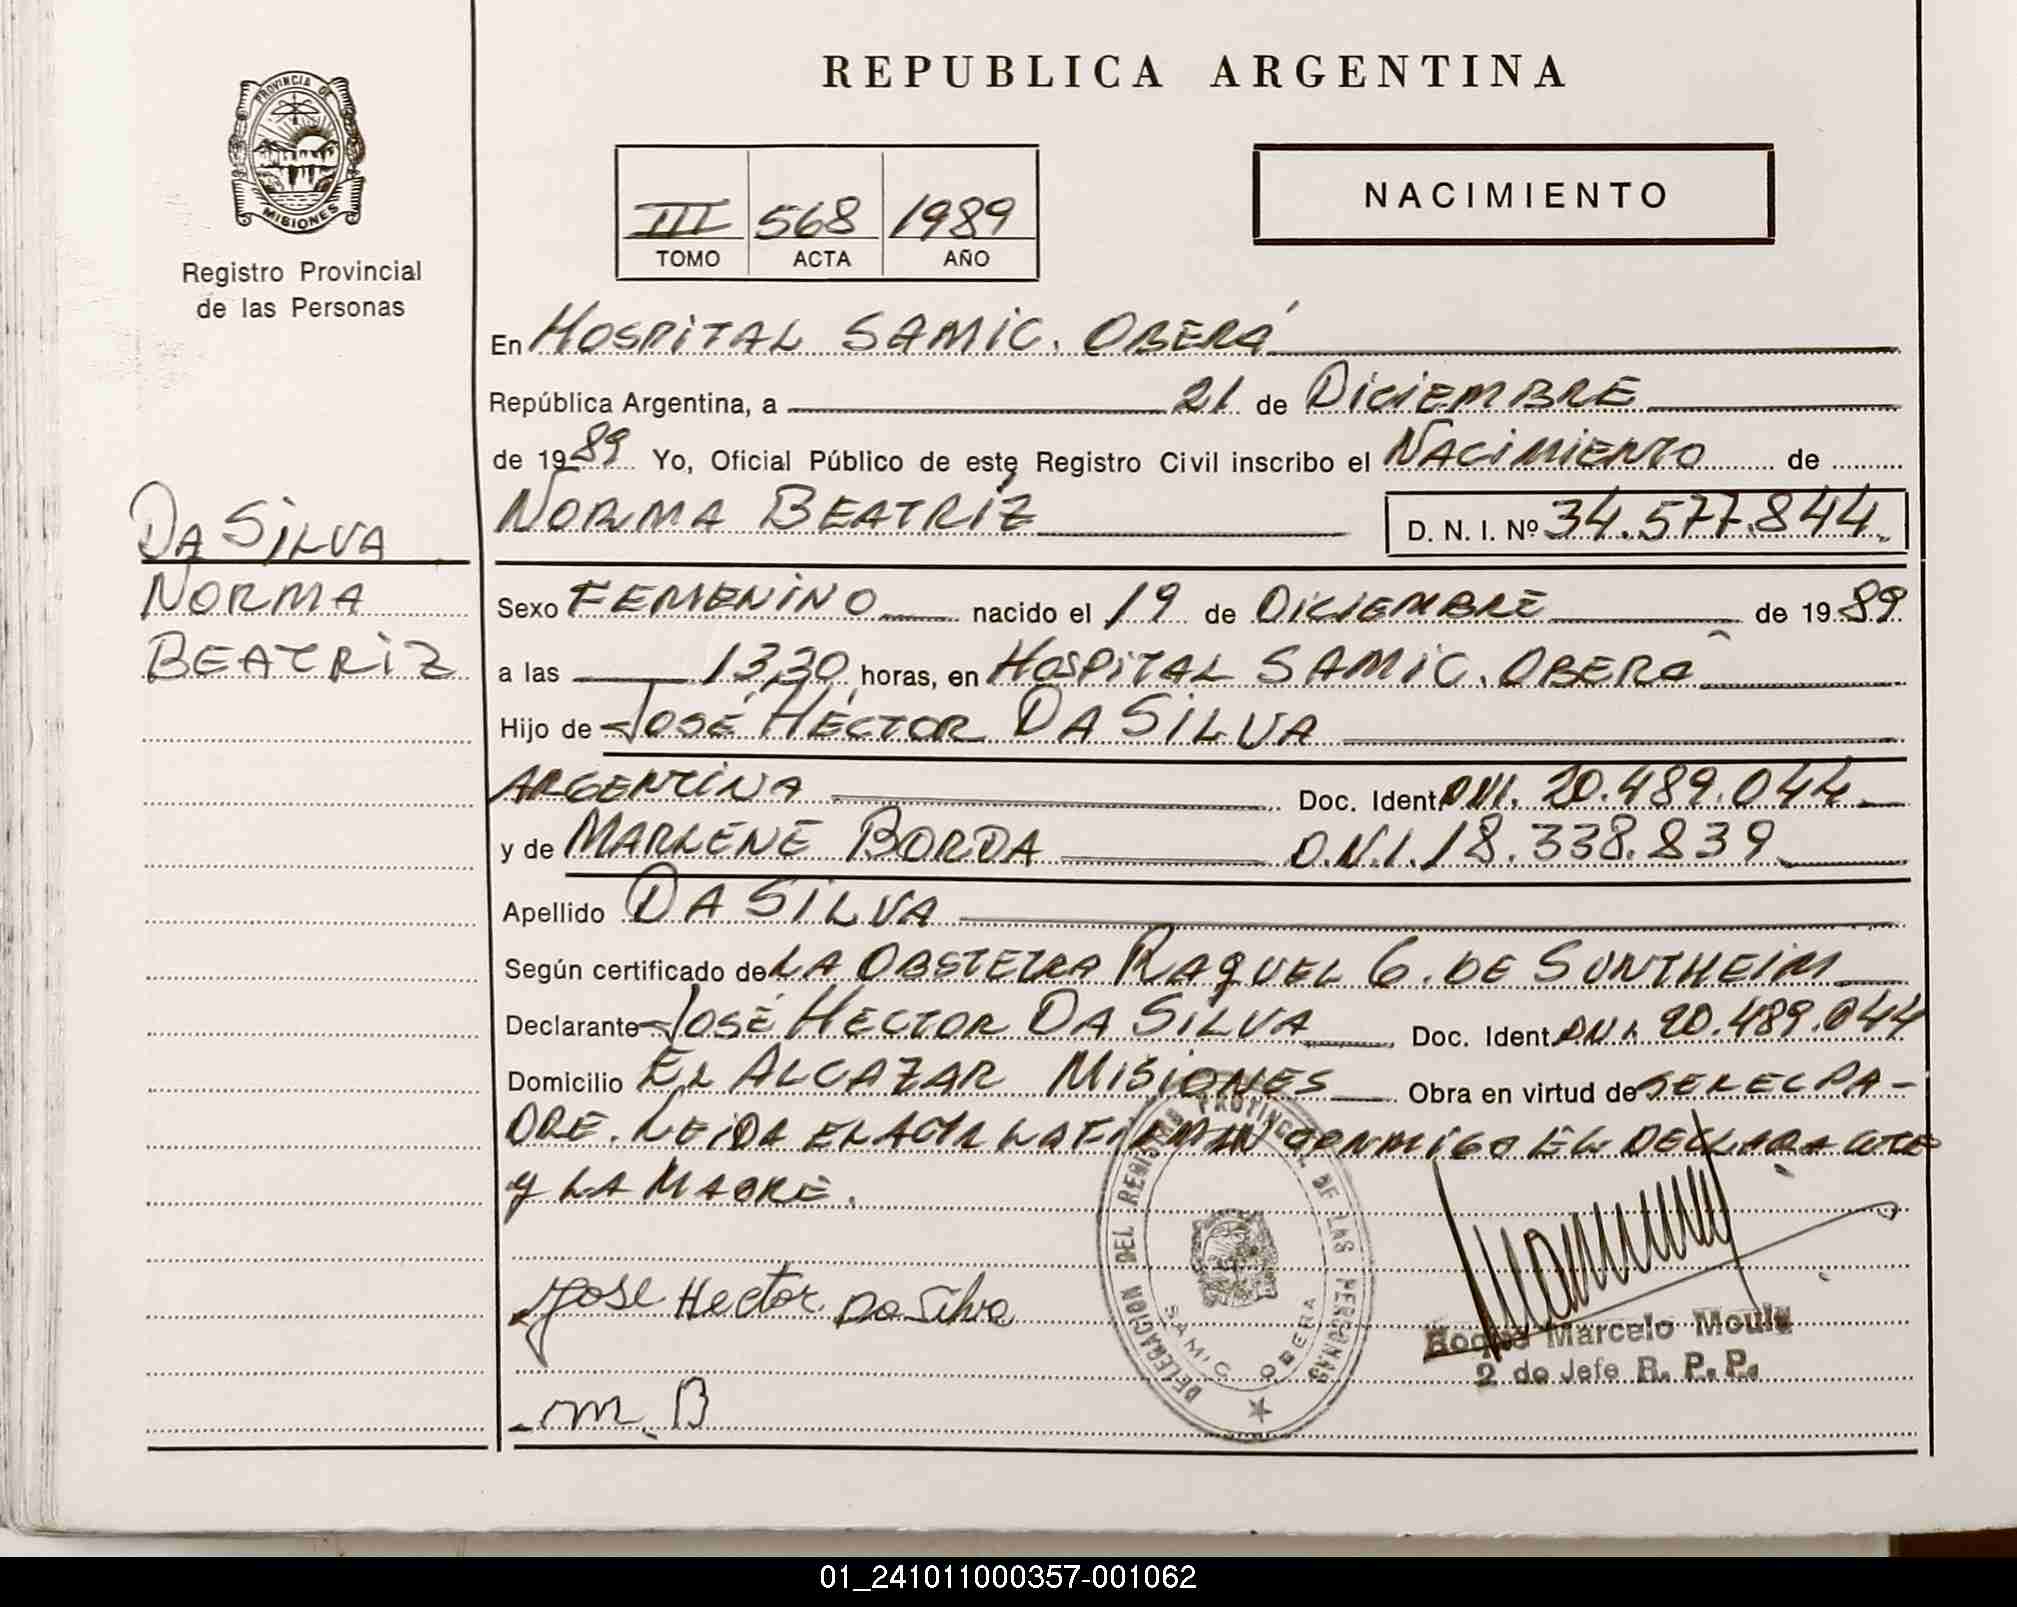 REPUBLICA ARGENTINA
PROVINCIA DE
MISIONES
Registro Provincial
de las Personas
III 568 1989
TOMO ACTA AÑO
NACIMIENTO
En HOSPITAL SAMIC. OBERÁ
República Argentina, a 21 de DICIEMBRE
de 1989 Yo, Oficial Público de este Registro Civil inscribo el NACIMIENTO de
NORMA BEATRIZ D. N. I. Nº 34.577.844.
DA SILVA
NORMA
BEATRIZ
Sexo FEMENINO nacido el 19 de DICIEMBRE de 1989
a las 13,30 horas, en HOSPITAL SAMIC. OBERÁ
Hijo de JOSÉ HÉCTOR DA SILVA
ARGENTINA Doc. Ident. DNI. 20.489.044
y de MARLENE BORDA D.N.I. 18.338.839
Apellido DA SILVA
Según certificado de LA OBSTETRA RAQUEL G. DE SUNTHEIM
Declarante JOSÉ HECTOR DA SILVA Doc. Ident. DNI. 20.489.044
Domicilio EL ALCAZAR MISIONES Obra en virtud de SER EL PA-
DRE. LEIDA EL ACTA LA FIRMAN CONMIGO EL DECLARANTE
Y LA MADRE.
Jose Hector Da Silva
m. B
DELEGACION DEL REGISTRO PROVINCIAL DE LAS PERSONAS
SAMIC OBERA
Roque Marcelo
2 do Jefe R. P. P.
01_241011000357-001062